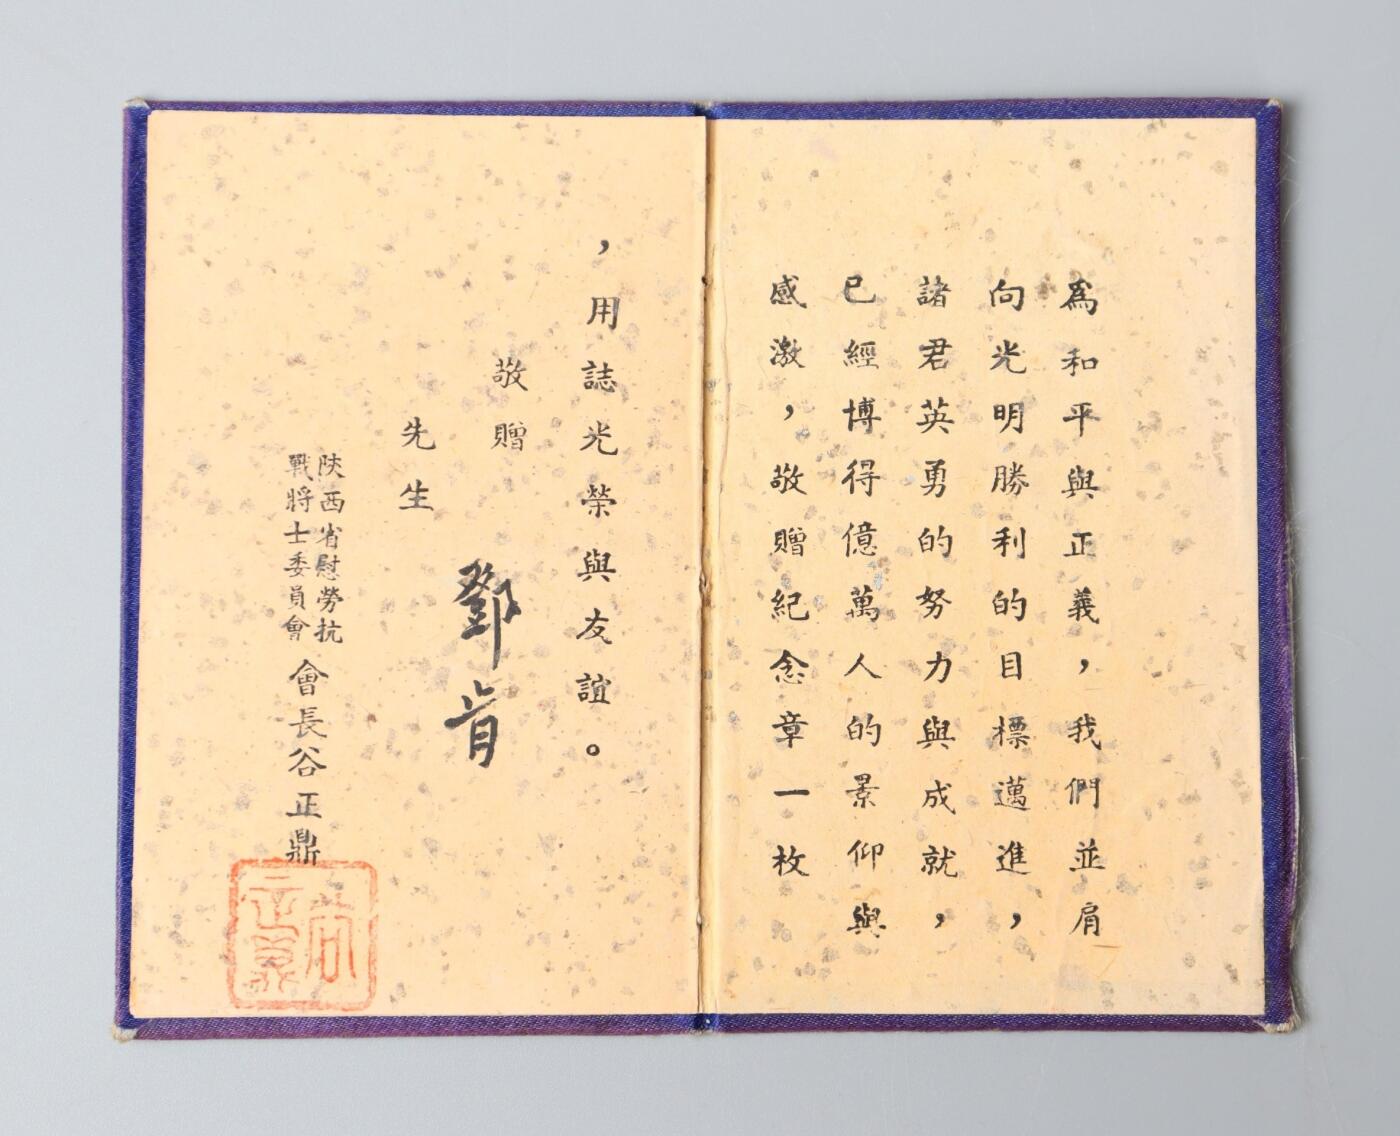 為和平與正義，我們並肩
向光明勝利的目標邁進，
諸君英勇的努力與成就，
已經博得億萬人的景仰與
感激，敬贈紀念章一枚
，用誌光榮與友誼。
敬贈
鄧肯
先生
陝西省慰勞抗
戰將士委員會
會長谷正鼎